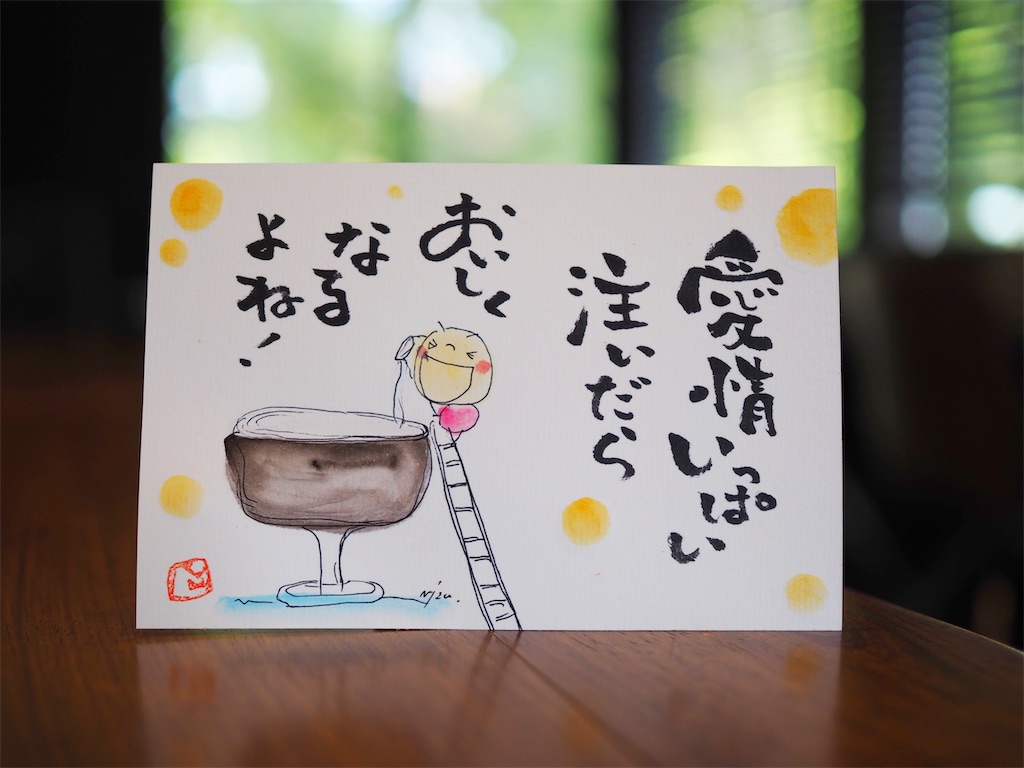 愛情いっぱい
注いだら
おいしく
なる
よね!